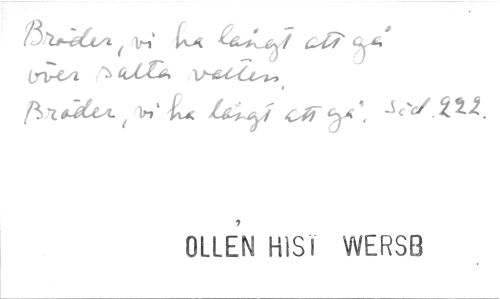 Bröder, vi ha långt att gå
över salta vatten.
Bröder, vi ha långt att gå. Sid. 222.
OLLÉN HISÏ WERSB